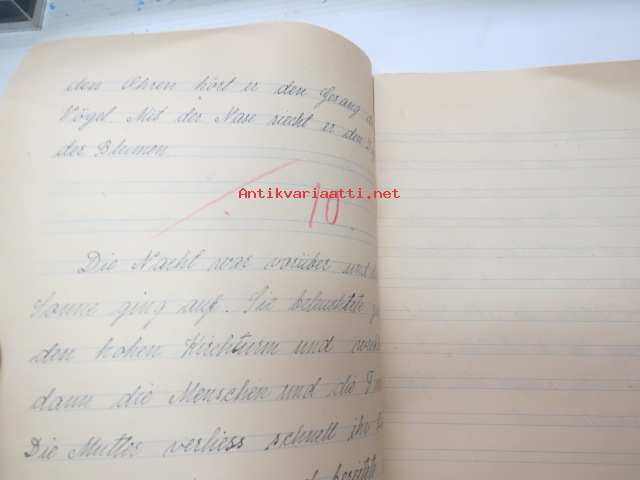 den Ohren hört er den Gesang
Vögel. Mit der Nase riecht er den
der Blumen.
Antikvariaatti.net
10
Die Nacht war vorüber und
Sonne ging auf. Sie beleuchtete
den hohen Kirchturm und
dann die Menschen und die
Die Mutter verliess schnell ihr
bereitete